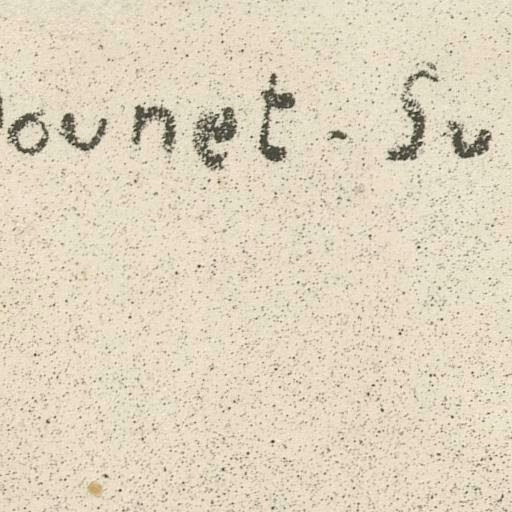 ounet - Su